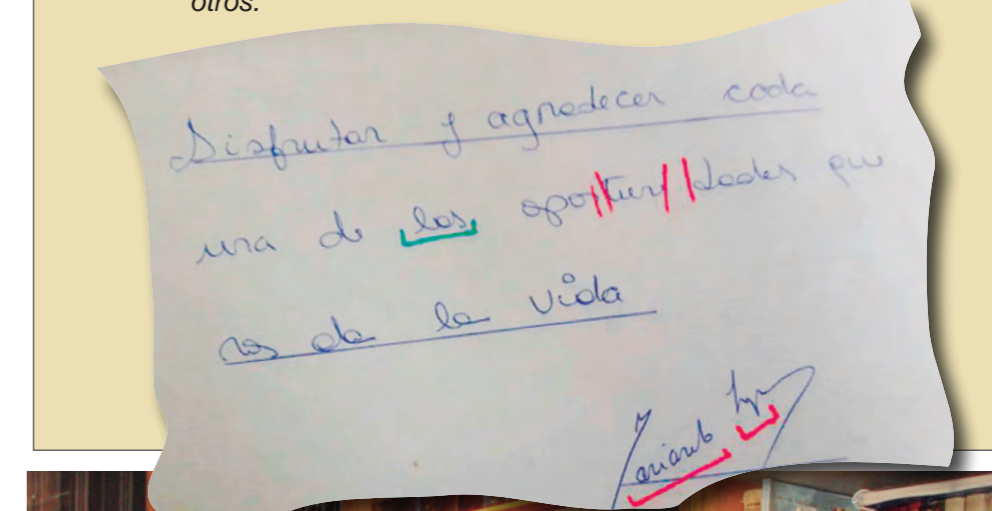 otros.
Disfrutar y agradecer cada
una de las oportunidades que
nos da la vida